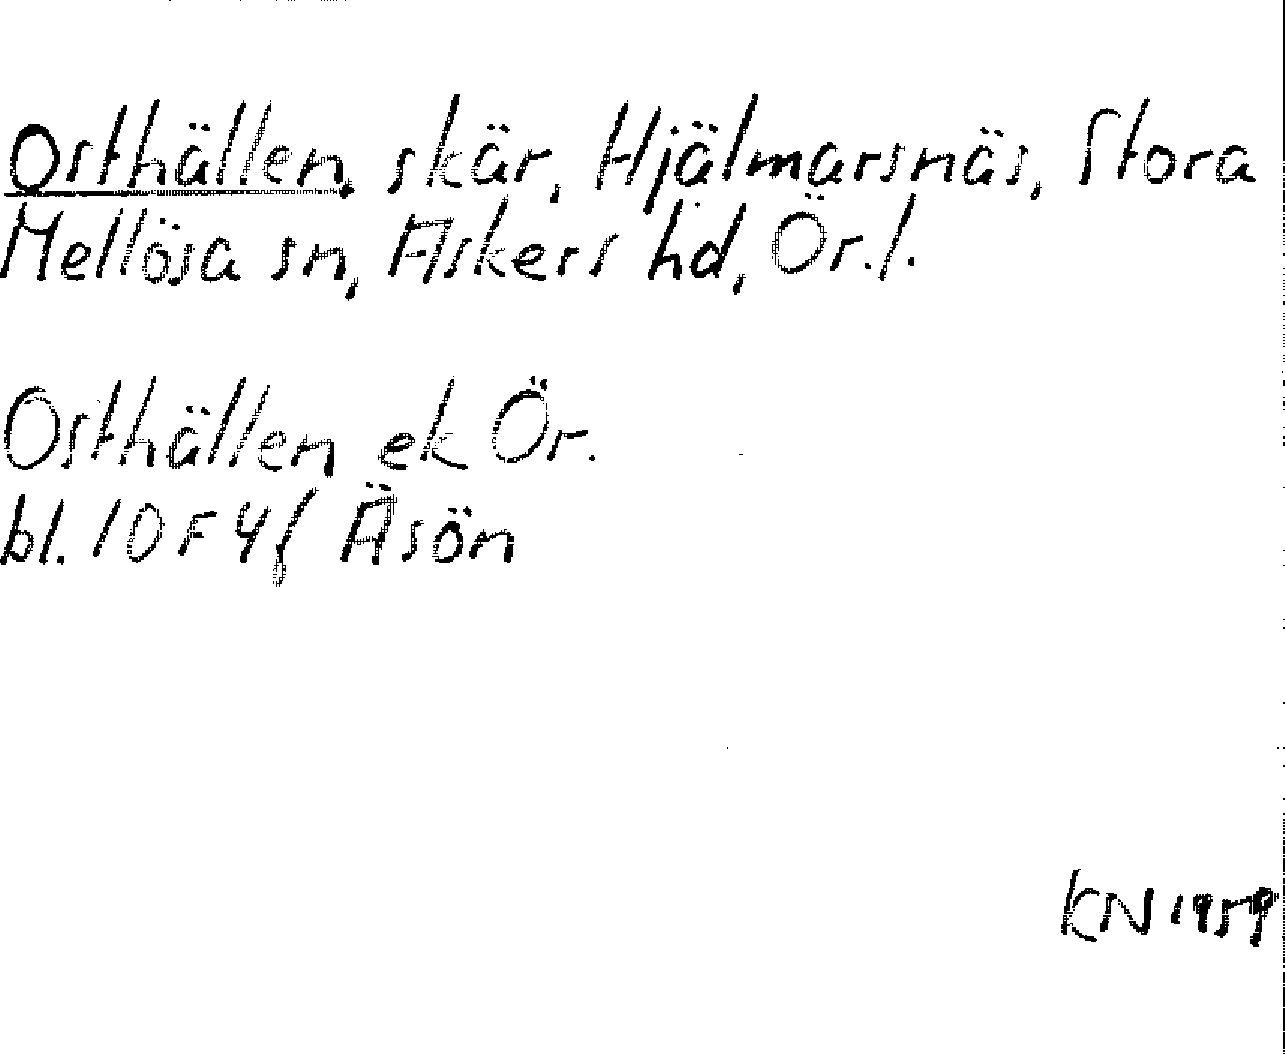 Osthällen, skär, Hjälmarsnäs, Stora
Mellösa sn, Askers hd, Ör. l.
Osthällen ek Ör.
bl. 10F4f Äsön
KN 1959